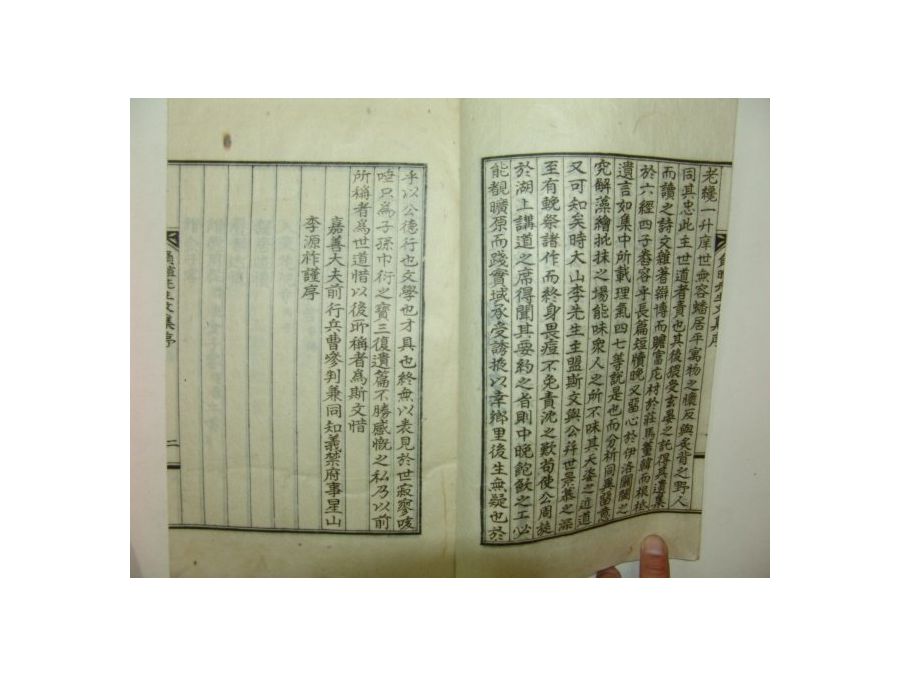 老纔一升庠世無容蟠居平寓物之懷反與炙背之野人
同其忠此主世道者責也其後猥受玄晏之託得其遺集
而讀之詩文雜著辯博而贍富庀材於莊馬董韓而根柢
於六經四子舂容乎長篇短牘晩又留心於伊洛關閩之
遺言如集中所載理氣四七等說是也而分析同異留意
究解藻繪批抹之場能味衆人之所不味其天姿之近道
又可知矣時大山李先生主盟斯文與公幷世景慕之深
至有輓祭諸作而終身畏疽不免責沈之歎苟使公周旋
於湖上講道之席得聞其要約之旨則中晩飽飫之工必
能覩曠原而踐實域承受誘掖以幸鄕里後生無疑也於
乎以公德行也文學也才具也終無以表見於世寂寥咳
唾只爲子孫巾衍之寶三復遺篇不勝感慨之私乃以前
所稱者爲世道惜以後所稱者爲斯文惜
嘉善大夫前行兵曹參判兼同知義禁府事星山
李源祚謹序
先生文集序
二